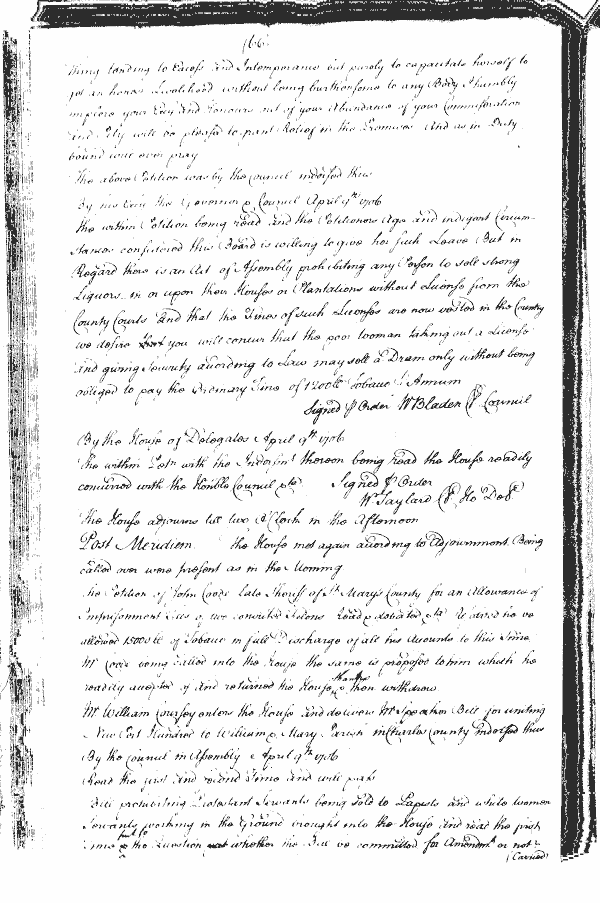 166
thing tending to Excess and Intemperance but purely to capacitate herself to
get an honest Livelihood without being burthensome to any Body I humbly
implore your Excy and Honours out of your Abundance of your Commiseration
and Pity will be pleased to grant Relief in the Premises And as in Duty
bound will ever pray
The above Petition was by the Council indorsed thus
By his Excy the Governor & Council April 9th 1706
The within Petition being read and the Petitioners Age and indigent Circum-
stances considered this Board is willing to give her such Leave But in
Regard there is an Act of Assembly prohibiting any Person to sell strong
Liquors in or upon their Houses or Plantations without Lycense from the
County Courts and that the Fines of such Lycenses are now vested in the County
we desire that you will concur that the poor woman taking out a Lycense
and giving Security according to Law may sell a Dram only without being
obliged to pay the Ordinary Fine of 1200lb Tobacco P Annum
Signed P Order W Bladen Cl Council
By the House of Delegates April 9th 1706
The within Petn with the Indorsmt thereon being read the House readily
concurred with the Honble Council &ca Signed P Order
W Taylard Cl Ho Del
The House adjourns till two o'Clock in the Afternoon
Post Meridiem the House met again according to Adjournment Being
called over were present as in the Morning
The Petition of John Coode late Sheriff of St Marys County for an Allowance of
Imprisonment Fees of two convicted Felons read & debated &ca Resolved he be
allowed 1500 lb of Tobacco in full Discharge of all his Accounts to this time
Mr Coode being called into the House the same is proposed to him which he
readily accepted of and returned the House thanks & then withdrew
Mr William Coursey enters the House and delivers Mr Speaker Bill for uniting
New Port Hundred to William & Mary Parish in Charles County indorsed thus
By the Council in Assembly April 9th 1706
Read the first and second Time and will pass
Bill prohibiting Protestant Servants being sold to Papists and white women
Servants working in the Ground brought into the House and read the first
time & put to the Question whether the Bill be committed for Amendmt or not?
(Carried